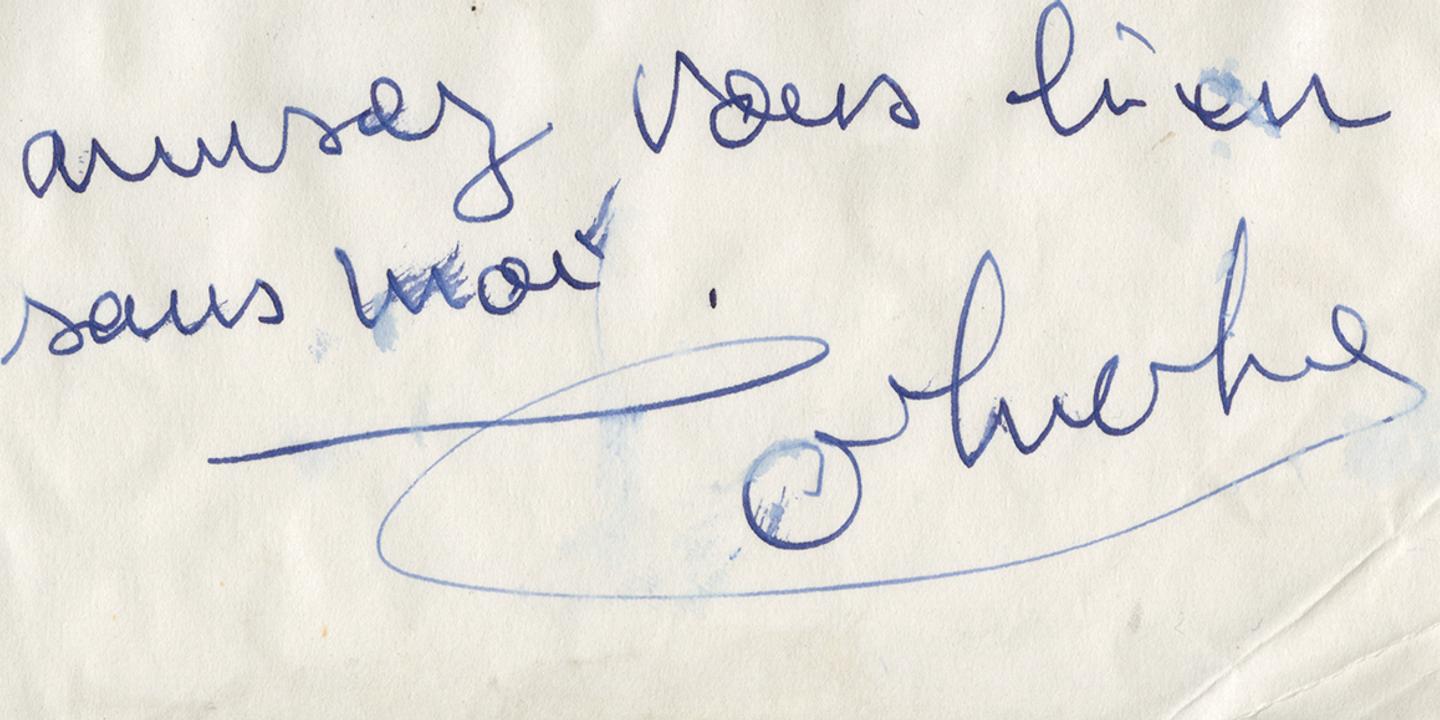 amusez vous bien
sans moi.